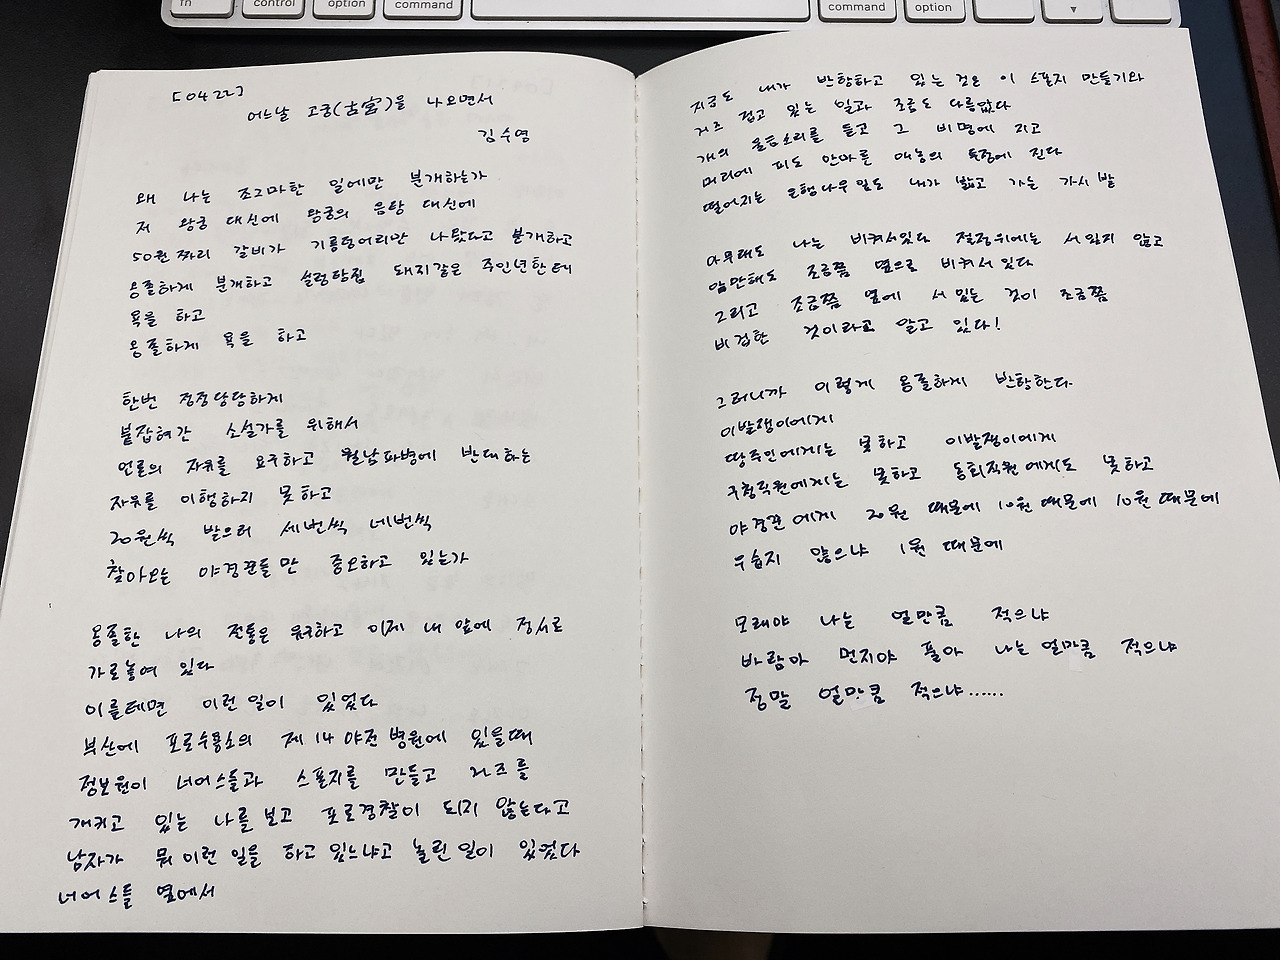 fn
control
option
command
command
option
[0422]
어느날 고궁(古宮)을 나오면서
김수영
왜 나는 조그마한 일에만 분개하는가
저 왕궁 대신에 왕궁의 음탕 대신에
50원짜리 갈비가 기름덩어리만 나왔다고 분개하고
옹졸하게 분개하고 설렁탕집 돼지같은 주인년한테
욕을 하고
옹졸하게 욕을 하고
한번 정정당당하게
붙잡혀간 소설가를 위해서
언론의 자유를 요구하고 월남파병에 반대하는
자유를 이행하지 못하고
20원씩 받으러 세번씩 네번씩
찾아오는 야경꾼들만 증오하고 있는가
옹졸한 나의 전통은 유구하고 이제 내 앞에 정서로
가로놓여 있다
이를테면 이런 일이 있었다
부산에 포로수용소의 제14야전병원에 있을때
정보원이 너어스들과 스폰지를 만들고 거즈를
개키고 있는 나를 보고 포로경찰이 되지 않는다고
남자가 뭐 이런 일을 하고 있느냐고 놀린 일이 있었다
너어스들 옆에서
지금도 내가 반항하고 있는 것은 이 스폰지 만들기와
거즈 접고 있는 일과 조금도 다름없다
개의 울음소리를 듣고 그 비명에 지고
머리에 피도 안마른 애놈의 투정에 진다
떨어지는 은행나무잎도 내가 밟고 가는 가시밭
아무래도 나는 비켜서있다 절정위에는 서있지 않고
암만해도 조금쯤 옆으로 비켜서있다
그리고 조금쯤 옆에 서있는 것이 조금쯤
비겁한 것이라고 알고 있다!
그러니까 이렇게 옹졸하게 반항한다
이발쟁이에게
땅주인에게는 못하고 이발쟁이에게
구청직원에게는 못하고 동회직원에게도 못하고
야경꾼에게 20원 때문에 10원 때문에 10원 때문에
우습지 않으냐 1원 때문에
모래야 나는 얼만큼 적으냐
바람아 먼지야 풀아 나는 얼만큼 적으냐
정말 얼만큼 적으냐……